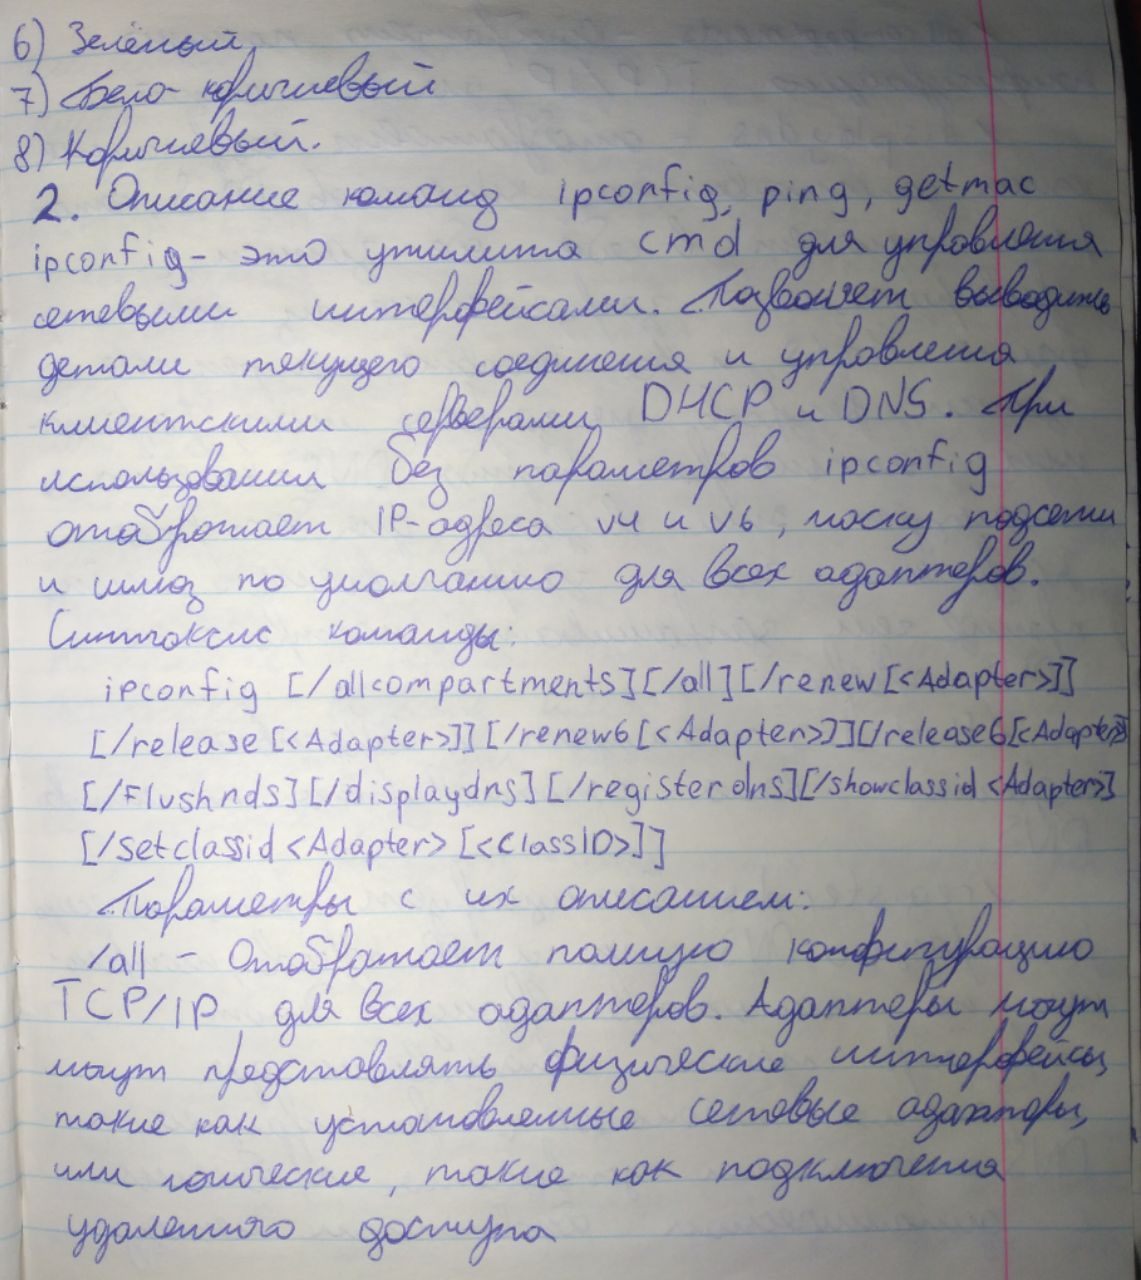 6) Зелёный
7) Бело-коричневый
8) Коричневый.
2. Описание команд ipconfig, ping, getmac
ipconfig - это утилита cmd для управления
сетевыми интерфейсами. Позволяет выводить
детали текущего соединения и управления
клиентскими серверами DHCP и DNS. При
использовании без параметров ipconfig
отображает IP-адреса v4 и v6, маску подсети
и шлюз по умолчанию для всех адаптеров.
Синтаксис команды:
ipconfig [/allcompartments][/all][/renew[<Adapter>]]
[/release[<Adapter>]][/renew6[<Adapter>]][/release6[<Adapter>]]
[/Flushnds][/displaydns][/registerdns][/showclassid <Adapter>]
[/setclassid <Adapter> [<ClassID>]]
Параметры с их описанием:
/all - Отображает полную конфигурацию
TCP/IP для всех адаптеров. Адаптеры могут
могут представлять физические интерфейсы,
такие как установленные сетевые адаптеры,
или логические, такие как подключения
удаленного доступа